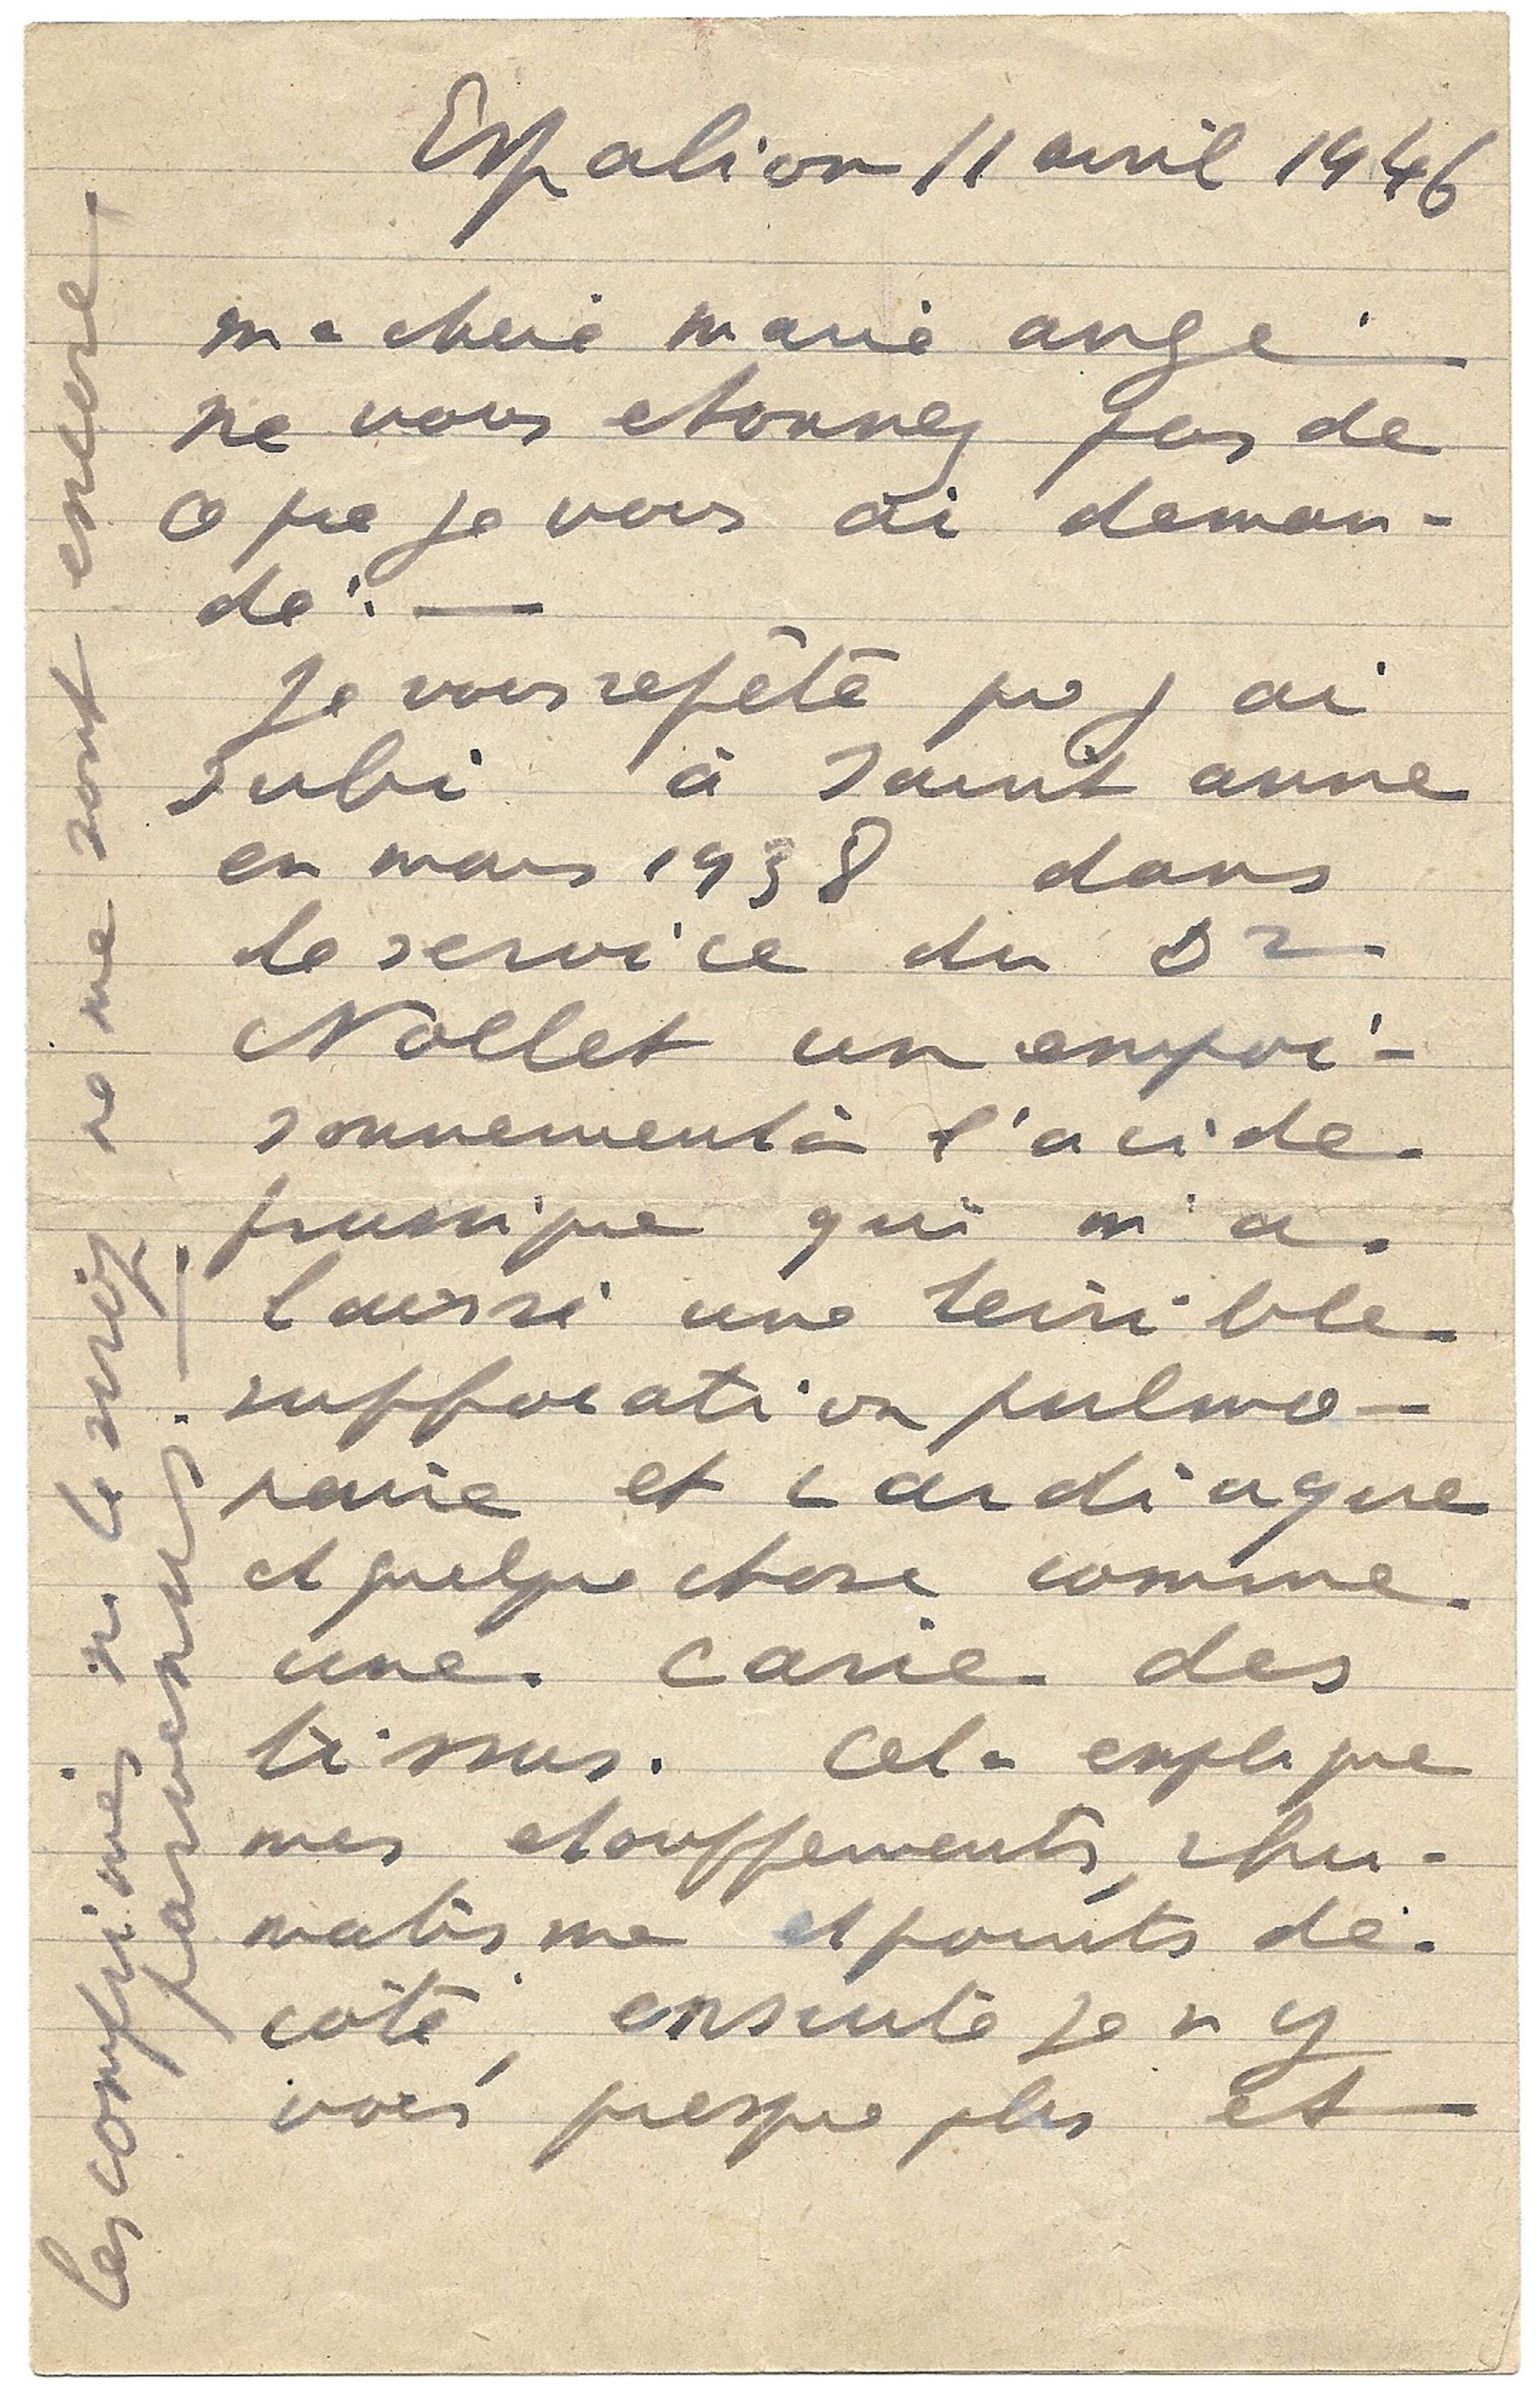 Espalion 11 avril 1946
ma chere marie ange
ne vous etonnez pas de
ce que je vous ai deman-
dé. —
Je vous repète que j ai
subi à Saint anne
en mars 1938 dans
le service du Dr
Nollet un empoi-
sonnement à l'acide
prussique qui m'a
laissé une terrible
suffocation pulmo-
naire et cardiaque
et quelque chose comme
une carie des
tissus. Cela explique
mes etouffements, rhu-
matisme et points de
coté, ensuite je n y
vois presque plus et
les comprimés ne me sont encore
parvenus. —